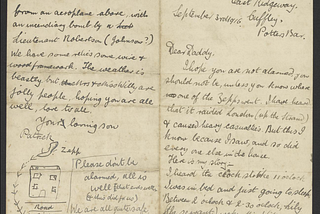 East Ridgeway.
September 3rd 1916 Cuffley,
Potters Bar.
Dear Daddy,
I hope you are not alarmed, you
should not be, unless you know where
one of the Zepps went. I have heard
that it raided London (up the Strand)
& caused heavy casualties. But this I
know because I saw, and so did
every one else in the house.
Here is my story —
I heard the clock strike 11 o'clock.
I was in bed and just going to sleep.
Between 2 o'clock & 2.30 o'clock,
from an aeroplane above, with
an incendiary bomb by a
Lieutenant Robertson (Johnson?)
We have some relics some wire &
wood framework. The weather is
beastly but
jolly people, hoping you are all
well, love to all.
Your loving son
Patrick
Zepp
Please don't be
alarmed, all is
well
We are all quite safe
Road